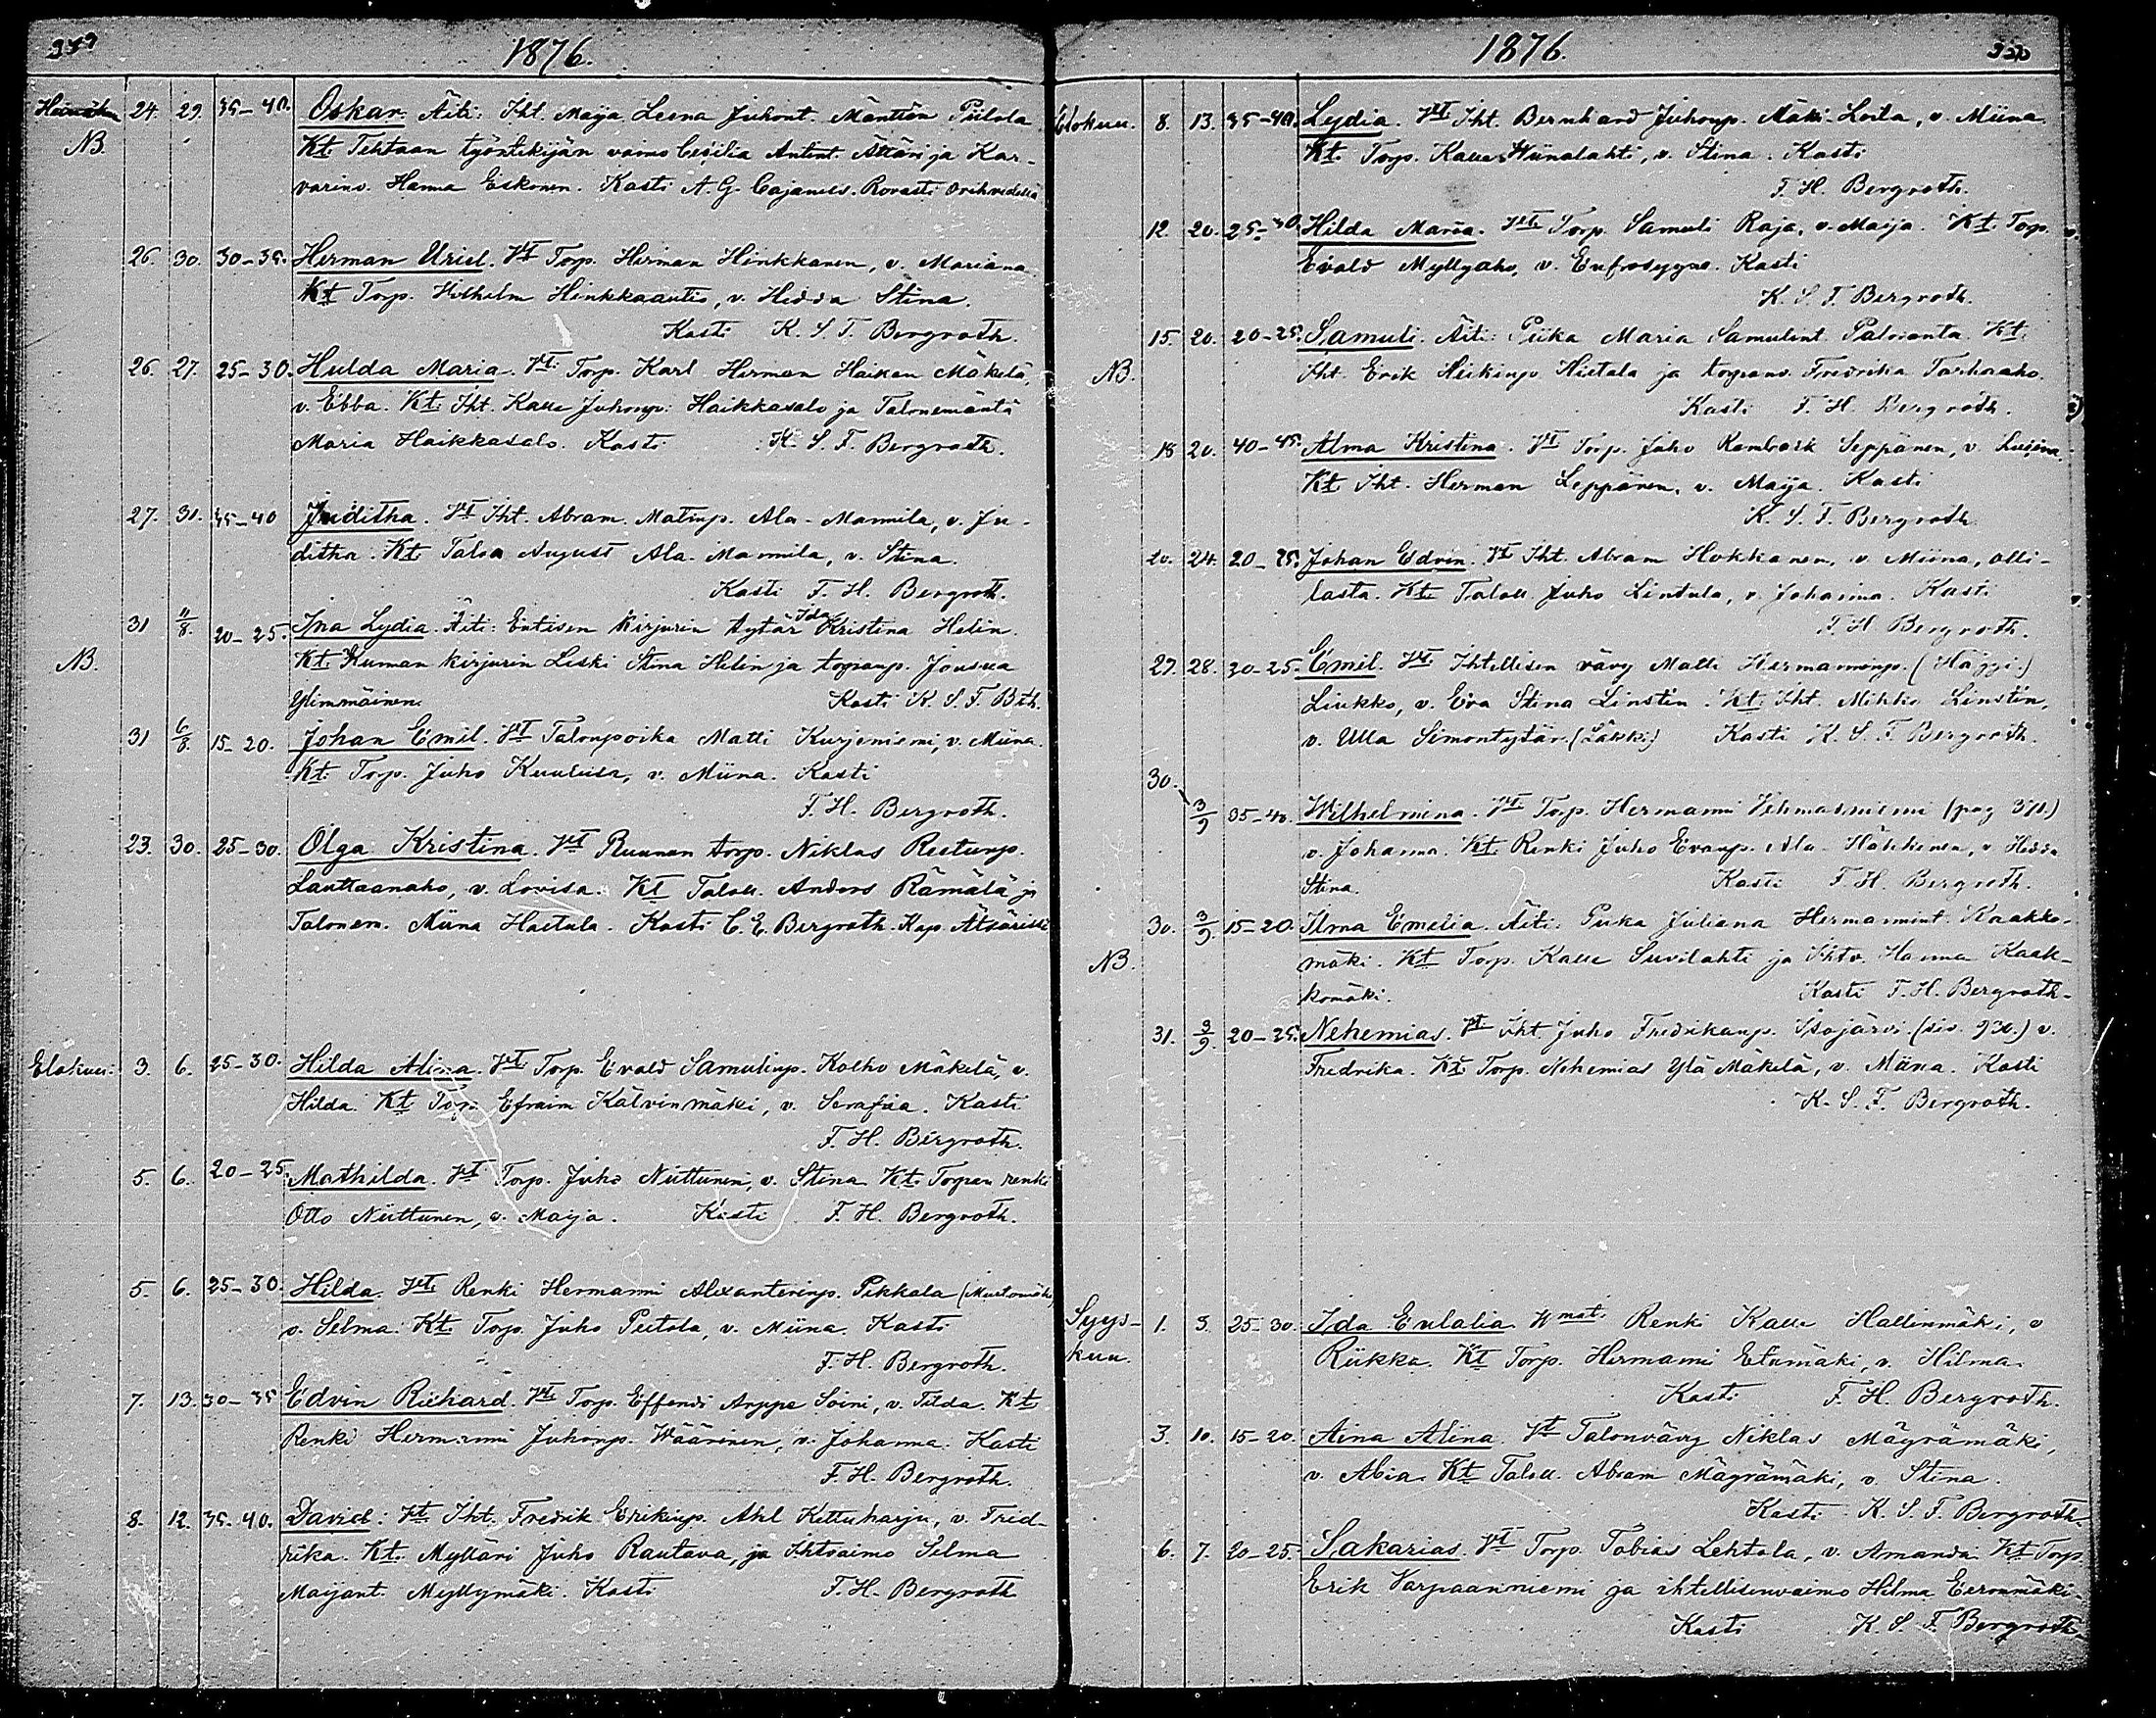 349 1876.
Heinäkuu 24. 29. 35-40. Oskar. Äiti: Iht. Maija Leena Juhont. Mänttön Piilola
NB. Kt. Tehtaan työntekijän vaimo Cecilia Antint. Ätsäri ja Kar-
varinv. Hanna Eskonen. Kasti A. G. Cajanus. Rovasti Orihvedellä
26. 30. 30-35. Herman Uriel. Vt Torp. Herman Hinkkanen, v. Mariana.
Kt Torp. Vilhelm Hinkkaautio, v. Hedda Stina.
Kasti K. S. F. Bergroth.
26. 27. 25-30. Hulda Maria. Vt. Torp. Karl Herman Haikan Mäkelä,
v. Ebba. Kt. Iht. Kalle Juhonp. Haikkasalo ja Talonemäntä
Maria Haikkasalo. Kasti K. S. F. Bergroth.
27. 31. 35-40 Juditha. Vt Iht. Abram. Matinp. Ala-Mannila, v. Ju-
ditha. Kt. Taloa August Ala-Mannila, v. Stina.
Kasti F. H. Bergroth.
31 11/8. 20-25. Ina Lydia. Äiti: Entisen kirjurin tytär Ida Kristina Helin.
NB. Kt. Ruman kirjurin Leski Stina Helin ja torpanp. Joosua
Ylimmäinen. Kasti K. S. F. Bth.
31 6/8 15-20. Johan Emil. Vt Talonpoika Matti Kurjenniemi, v. Miina.
Kt. Torp. Juho Kuuluisa, v. Miina. Kasti
F. H. Bergroth.
23. 30. 25-30. Olga Kristina. Vt Ruunan torp. Niklas Reetunp.
Lauttaanaho, v. Lovisa. Kt Taloll. Anders Rämälä ja
Talonem. Miina Hastala. Kasti C. E. Bergroth. Kap. Ätsärissä
Elokuu: 3. 6. 25-30. Hilda Alina. Vt Torp. Evald Samulinp. Kolho Mäkelä, v.
Hilda. Kt Torp. Efraim Kälvinmäki, v. Serafia. Kasti
F. H. Bergroth.
5. 6. 20-25. Mathilda. Vt Torp. Juho Niittunen, v. Stina Kt. Torpan renki
Otto Niittunen, v. Maija. Kasti F. H. Bergroth.
5. 6. 25-30. Hilda. Vt. Renki Hermanni Alexanterinp. Pikkala
v. Selma. Kt. Torp. Juho Peitola, v. Miina. Kasti
F. H. Bergroth.
7. 13. 30-35 Edvin Richard. Vt. Torp. Effendi Arppe Soini, v. Tilda. Kt.
Renki Hermanni Juhonp. Wäärinen, v. Johanna. Kasti
F. H. Bergroth.
8. 12. 35-40. David: Vt. Iht. Fredrik Erikinp. Ahl Kettuharju, v. Fred-
rika. Kt. Mylläri Juho Rautava, ja Ihtvaimo Selma
Maijant. Myllymäki. Kasti F. H. Bergroth
1876. 350
Elokuu. 8. 13. 35-40. Lydia. Vt. Iht. Bernhard Juhonp. Mäki-Loila, v. Miina.
Kt. Torp. Kalle Wiinalahti, v. Stina. Kasti
F. H. Bergroth.
12. 20. 25-30 Hilda Maria. Vt. Torp. Samuli Raja, v. Maija. Kt. Torp.
Evald Myllyaho, v. Eufrosyyne. Kasti
K. S. F. Bergroth.
15. 20. 20-25. Samuli. Äiti: Piika Maria Samulint. Kt.
NB. Iht. Erik Heikinp. Hietala ja torpanv. Fredrika Tarhaaho.
Kasti F. H. Bergroth.
18 20. 40-45. Alma Kristina. Vt Torp. Juho Seppänen, v.
Kt. Iht. Herman Leppänen, v. Maija. Kasti
K. S. F. Bergroth.
20. 24. 20-25. Johan Edvin. Vt Iht. Abram Hokkanen, v. Miina, Olli-
lasta. Kt. Taloll. Juho Lintula, v. Johanna. Kasti
F. H. Bergroth.
27. 28. 20-25. Emil. Vt. Ihtellisen vävy Malli Hermanninp.
Liukko, v. Eva Stina Linstén. Kt. Iht. Mihko Linstén,
v. Ulla Simontytär. Kasti K. S. F. Bergroth.
30. 3/9 35-40. Wilhelmina. Vt. Torp. Hermanni Vehmasniemi
v. Johanna. Kt. Renki Juho Evanp. Ala-Häkkinen, v. Hedda
Stina. Kasti F. H. Bergroth.
30. 3/9. 15-20. Ilma Emelia. Äiti: Piika Juliana Hermannint. Kaakko-
NB. mäki. Kt Torp. Kalle Suvilahti ja Ihtv. Hanna Kaak-
komäki. Kasti F. H. Bergroth.
31. 3/9. 20-25. Nehemias. Vt. Iht. Juho Fredrikanp. Isojärvi. v.
Fredrika. Kt. Torp. Nehemias Ylä Mäkelä, v. Miina. Kasti
K. S. F. Bergroth.
Syys- 1. 3. 25-30. Ida Eulalia. Vmat. Renki Kalle Hallinmäki, v
kuu. Riikka. Kt Torp. Hermanni Etumäki, v. Hilma.
Kasti F. H. Bergroth.
3. 10. 15-20. Aina Alina. Vt Talonvävy Niklas Mäyrämäki,
v. Abia. Kt Taloll. Abram Mäyrämäki, v. Stina.
Kasti K. S. F. Bergroth.
6. 7. 20-25. Sakarias. Vt Torp. Tobias Lehtola, v. Amanda. Kt Torp.
Erik Varpaanniemi ja ihtellisenvaimo Helma Eeronmäki.
Kasti K. S. F. Bergroth.